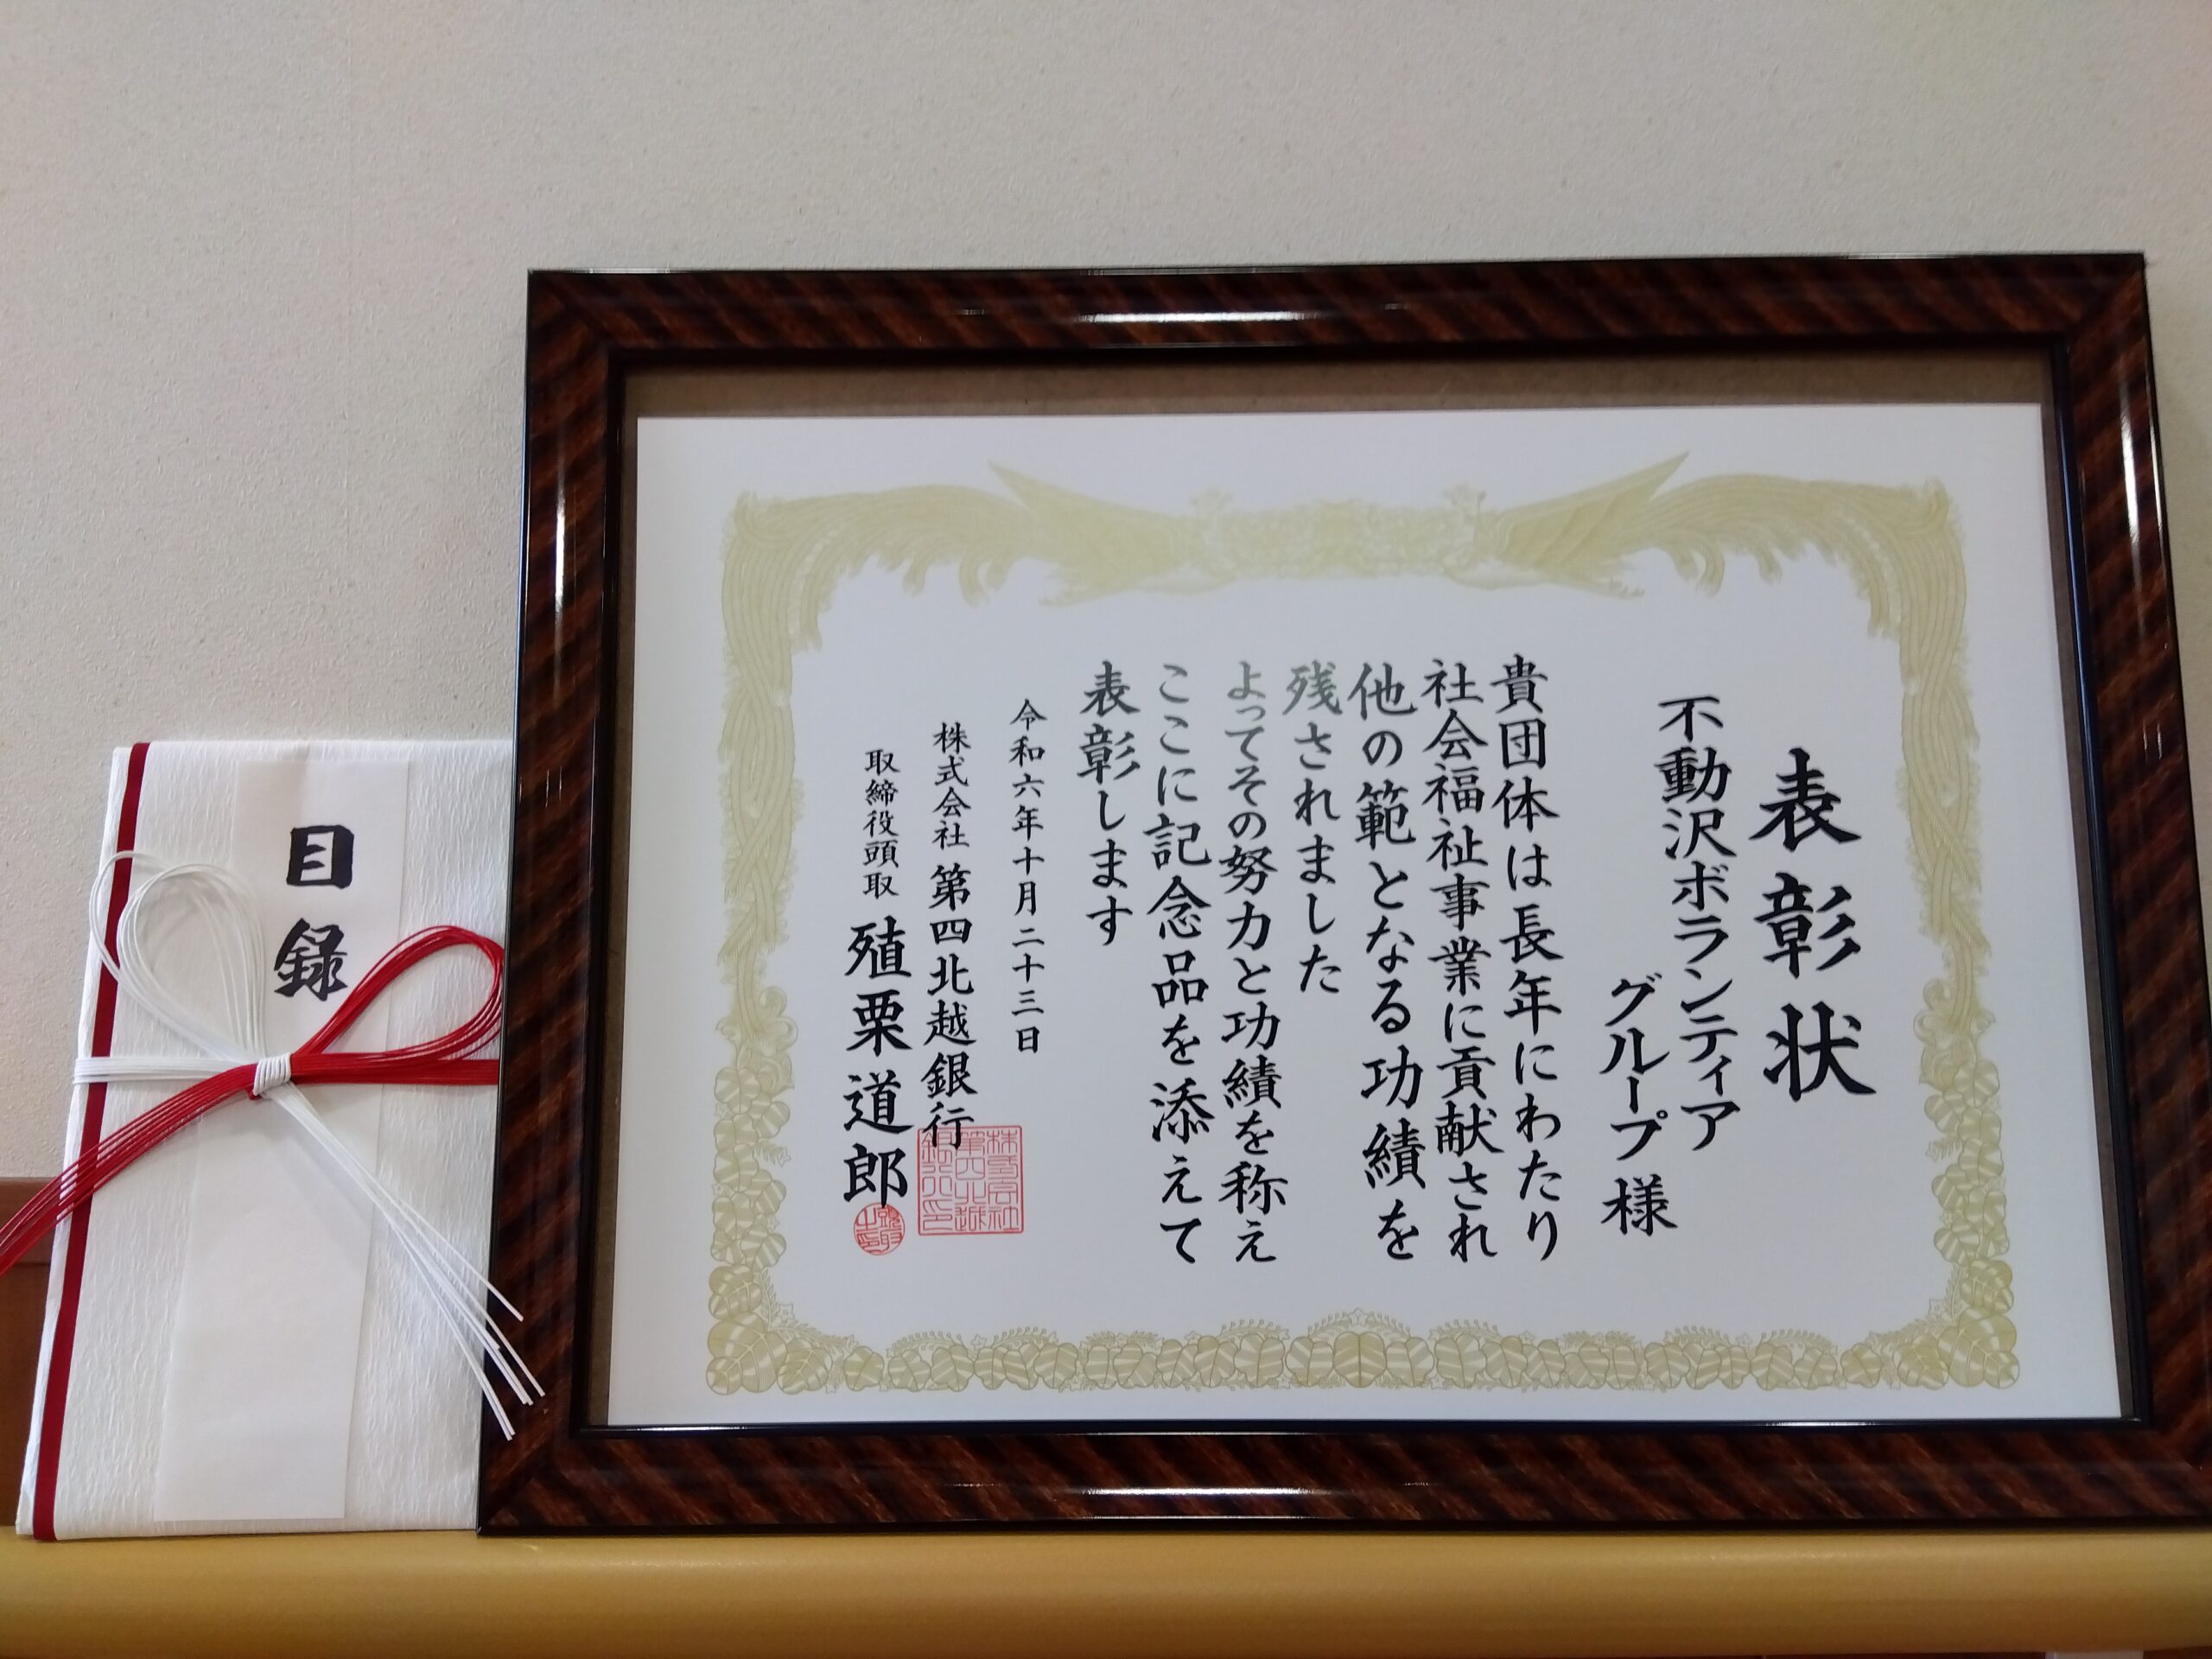 表彰状
不動沢ボランティア
グループ様
貴団体は長年にわたり
社会福祉事業に貢献され
他の範となる功績を
残されました
よってその努力と功績を称え
ここに記念品を添えて
表彰します
令和六年十月二十三日
株式会社 第四北越銀行
取締役頭取 殖栗道郎
株式会社
第四北越
銀行之印
目録